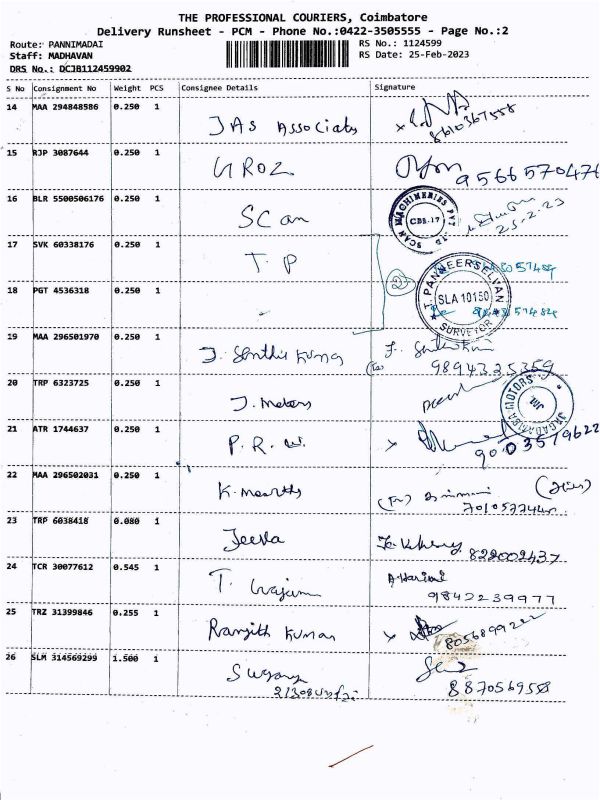 THE PROFESSIONAL COURIERS, Coimbatore
Delivery Runsheet - PCM - Phone No.:0422-3505555 - Page No.:2
Route: PANNIMADAI RS No.: 1124599
Staff: MADHAVAN RS Date: 25-Feb-2023
DRS No.: DCJB112459902
S No Consignment No Weight PCS Consignee Details Signature
14 MAA 294848586 0.250 1 JAS Associats
15 RJP 3087644 0.250 1 GROZ 9566570476
16 BLR 5500506176 0.250 1 SCan SCAN MACHINERIES PVT. LTD. CBE-17 25-2-23
17 SVK 60338176 0.250 1 T. P
18 PGT 4536318 0.250 1 2 T. PANNEERSELVAN SLA 10150 SURVEYOR
19 MAA 296501970 0.250 1 J. Senthil Kumar 9894325359
20 TRP 6323725 0.250 1 J. Motors JAGADAMBA MOTORS JML
21 ATR 1744637 0.250 1 P. R. W. 9003579622
22 MAA 296502031 0.250 1
23 TRP 6038418 0.080 1 Jeeva 822002437
24 TCR 30077612 0.545 1 T. A Harini
9842239977
25 TRZ 31399846 0.255 1 Ranjith Kumar
26 SLM 314569299 1.500 1